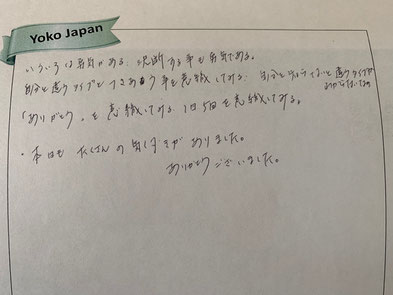 Yoko Japan
いろいろな勇気がある。決断する事も勇気である。
自分と違うタイプとつきあう事を意識してみる。自分と違うタイプが
「ありがとう」を意識してみる 1日5回を意識してみる。
・本日も たくさんの気づきがありました。
ありがとうございました。